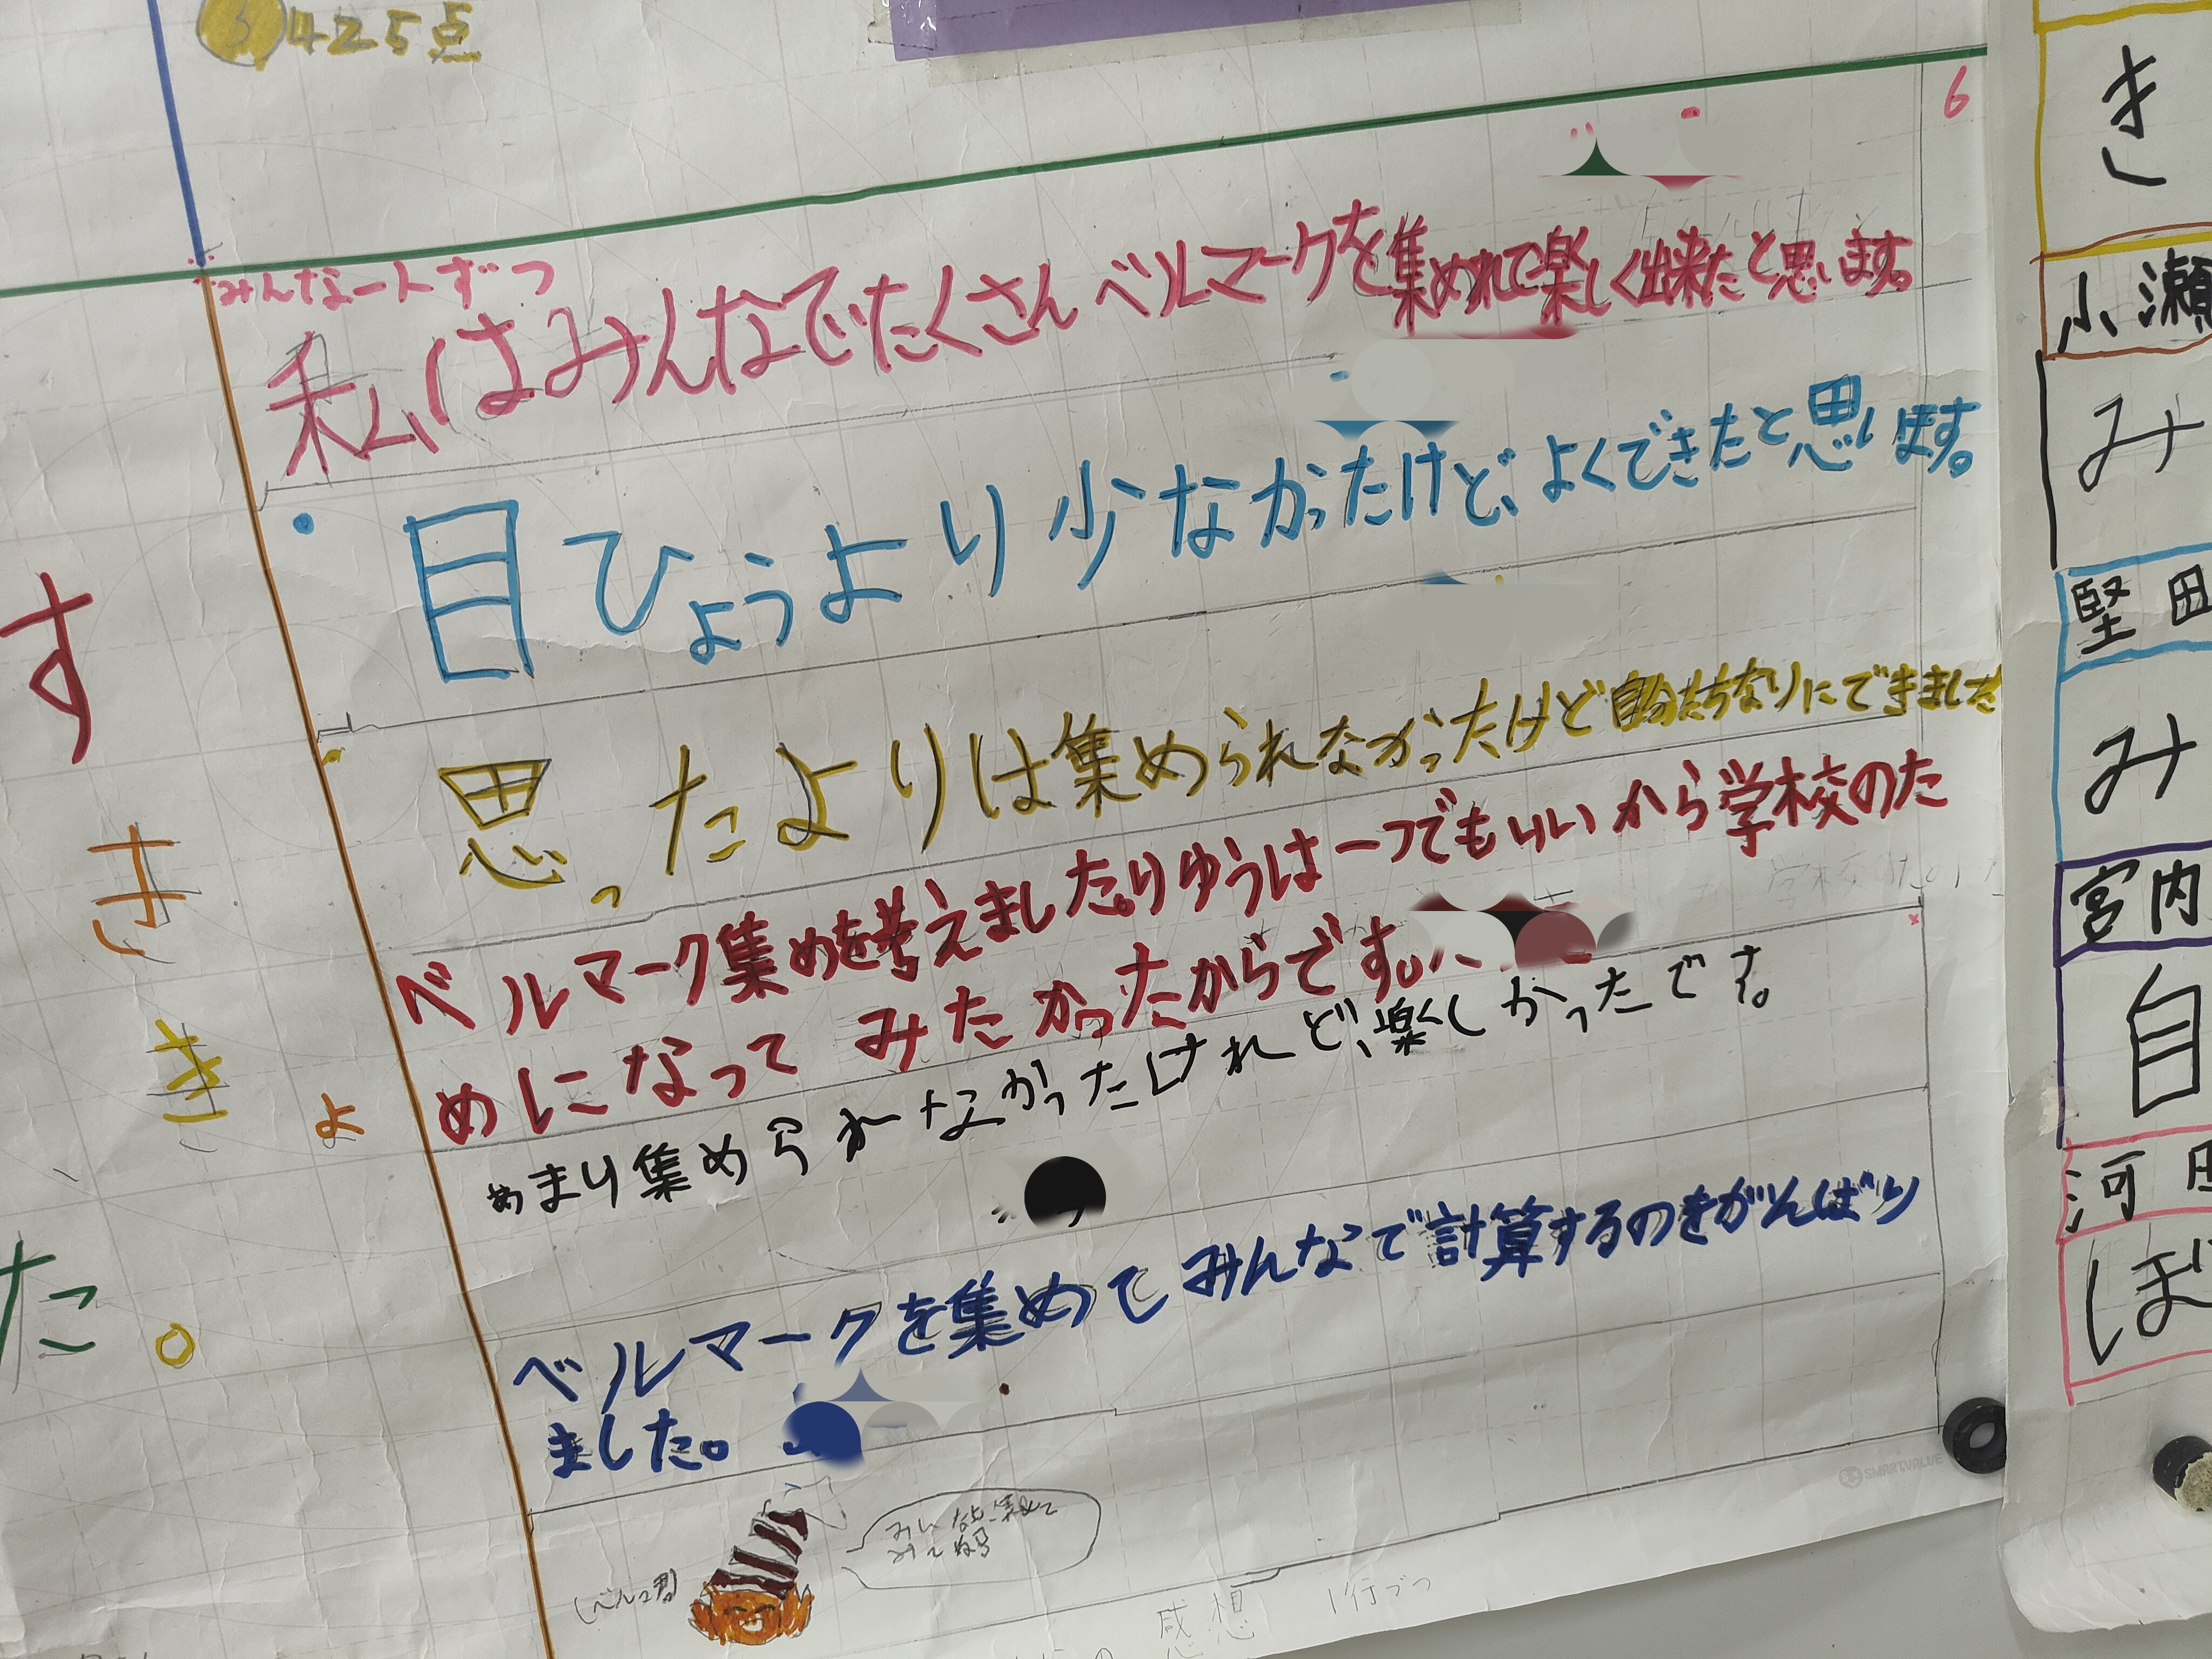 ③425点
6
みんな一人ずつ
私はみんなでたくさんベルマークを集めれて楽しく出来たと思います。
目ひょうより少なかったけど、よくできたと思います。
思ったよりは集められなかったけど自分たちなりにできました
ベルマーク集めを考えました。りゆうは一つでもいいから学校のた
めになってみたかったからです。
あまり集められなかったけれど、楽しかったです。
ベルマークを集めてみんなで計算するのをがんばり
ました。
(ベルマ君)
みんな
SMARTVALUE
感想 1行づつ
す
き
き
よ
た。
き
小瀬
み
堅田
み
宮内
自
河
ぼ